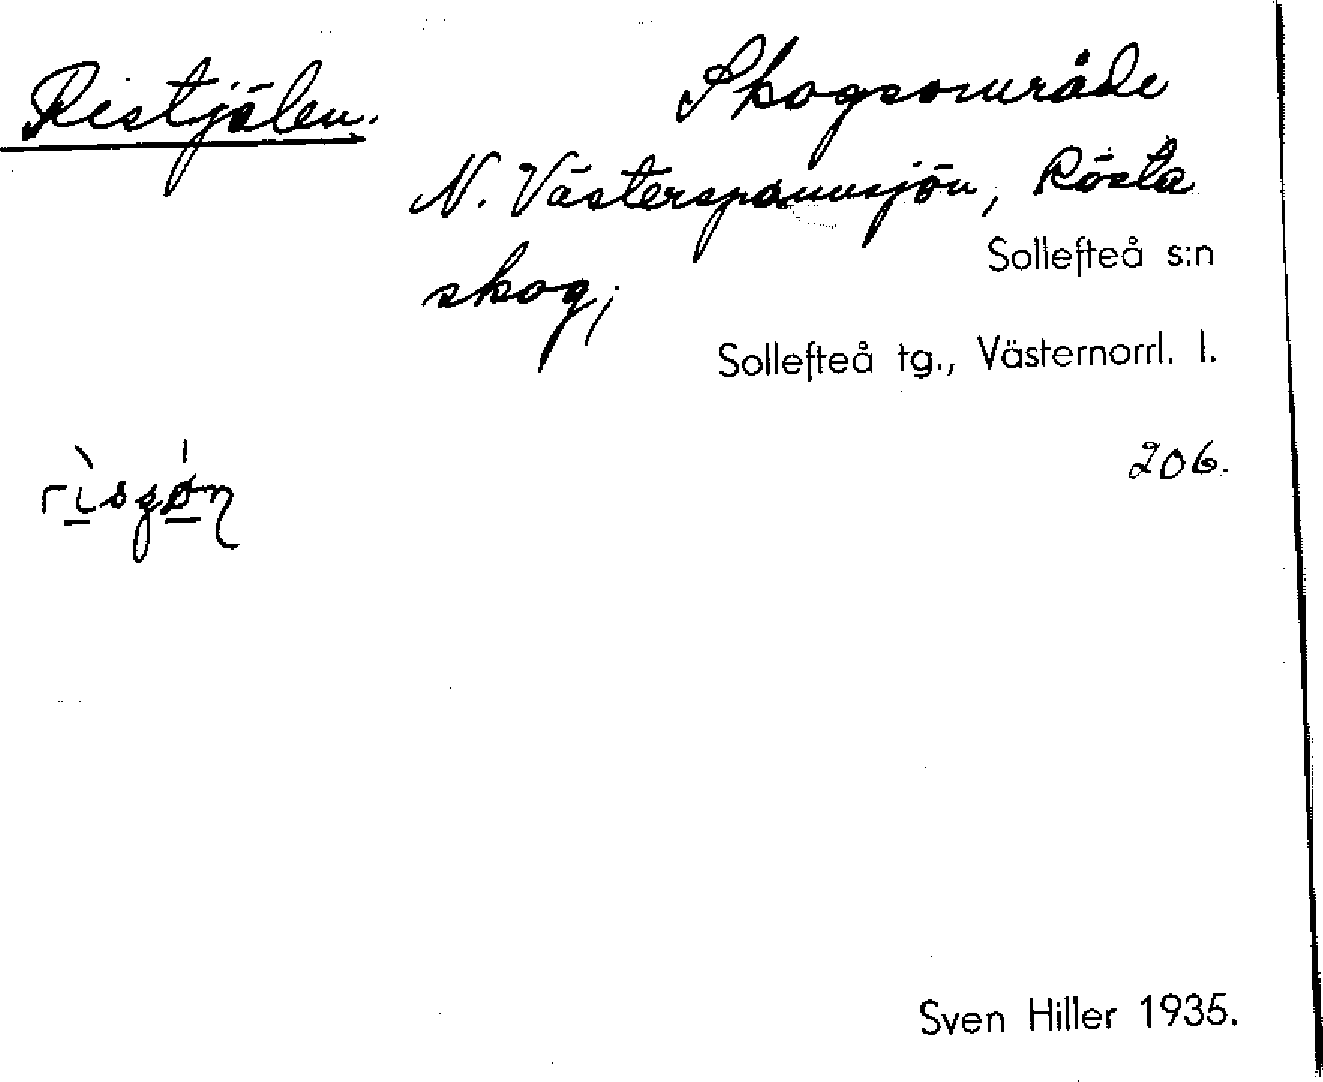 Ristjälen.
Skogsområde
N. Västerspannsjön, Rösta
skog;
Sollefteå s:n
Sollefteå tg., Västernorrl. l.
206.
Sven Hiller 1935.